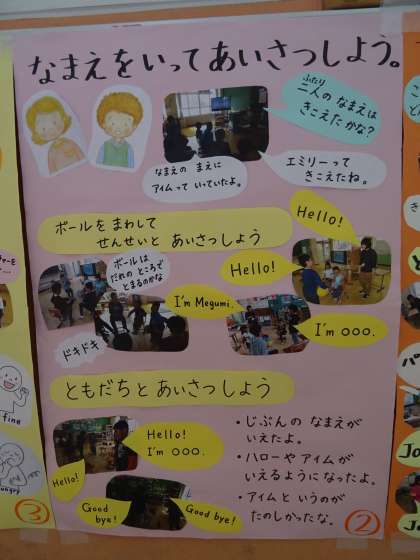 なまえをいってあいさつしよう。
ふたり
二人の なまえは
きこえたかな?
なまえの まえに
アイムって いっていたよ。
エミリーって
きこえたね。
ボールをまわして
せんせいと あいさつしよう
Hello!
ボールは
だれの ところで
とまるのかな
Hello!
I'm Megumi.
I'm ○○○.
ドキドキ
ともだちと あいさつしよう
Hello!
I'm ○○○.
Hello!
Good
bye!
Good bye!
・じぶんの なまえが
いえたよ。
・ハローや アイムが
いえるようになったよ。
・アイムと いうのが
たのしかったな。
②
fine
③